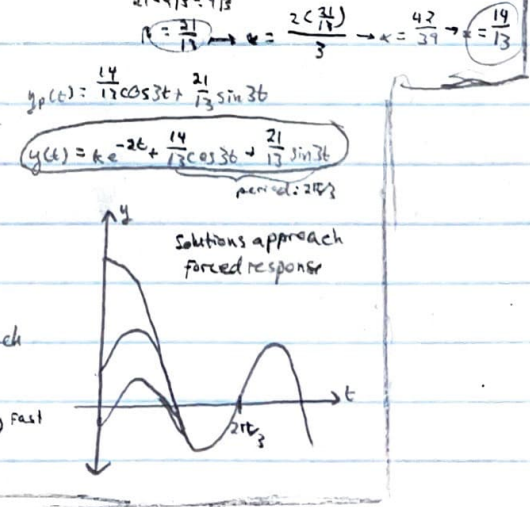 β = 21/13 → α = 2(21/13)/3 → α = 42/39 → α = 14/13
yp(t) = 14/13 cos3t + 21/13 sin3t
y(t) = ke^-2t + 14/13 cos3t + 21/13 sin3t
period: 2π/3
y
Solutions approach
forced response
ch
fast
t
2π/3